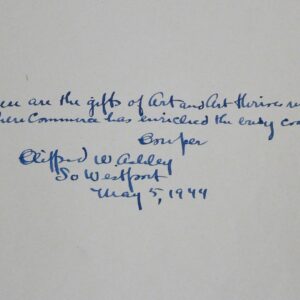 are the gifts of Art and Art thrives
Commerce has enriched the busy
Cowper
Clifford W. Ashley
So Westport
May 5, 1944